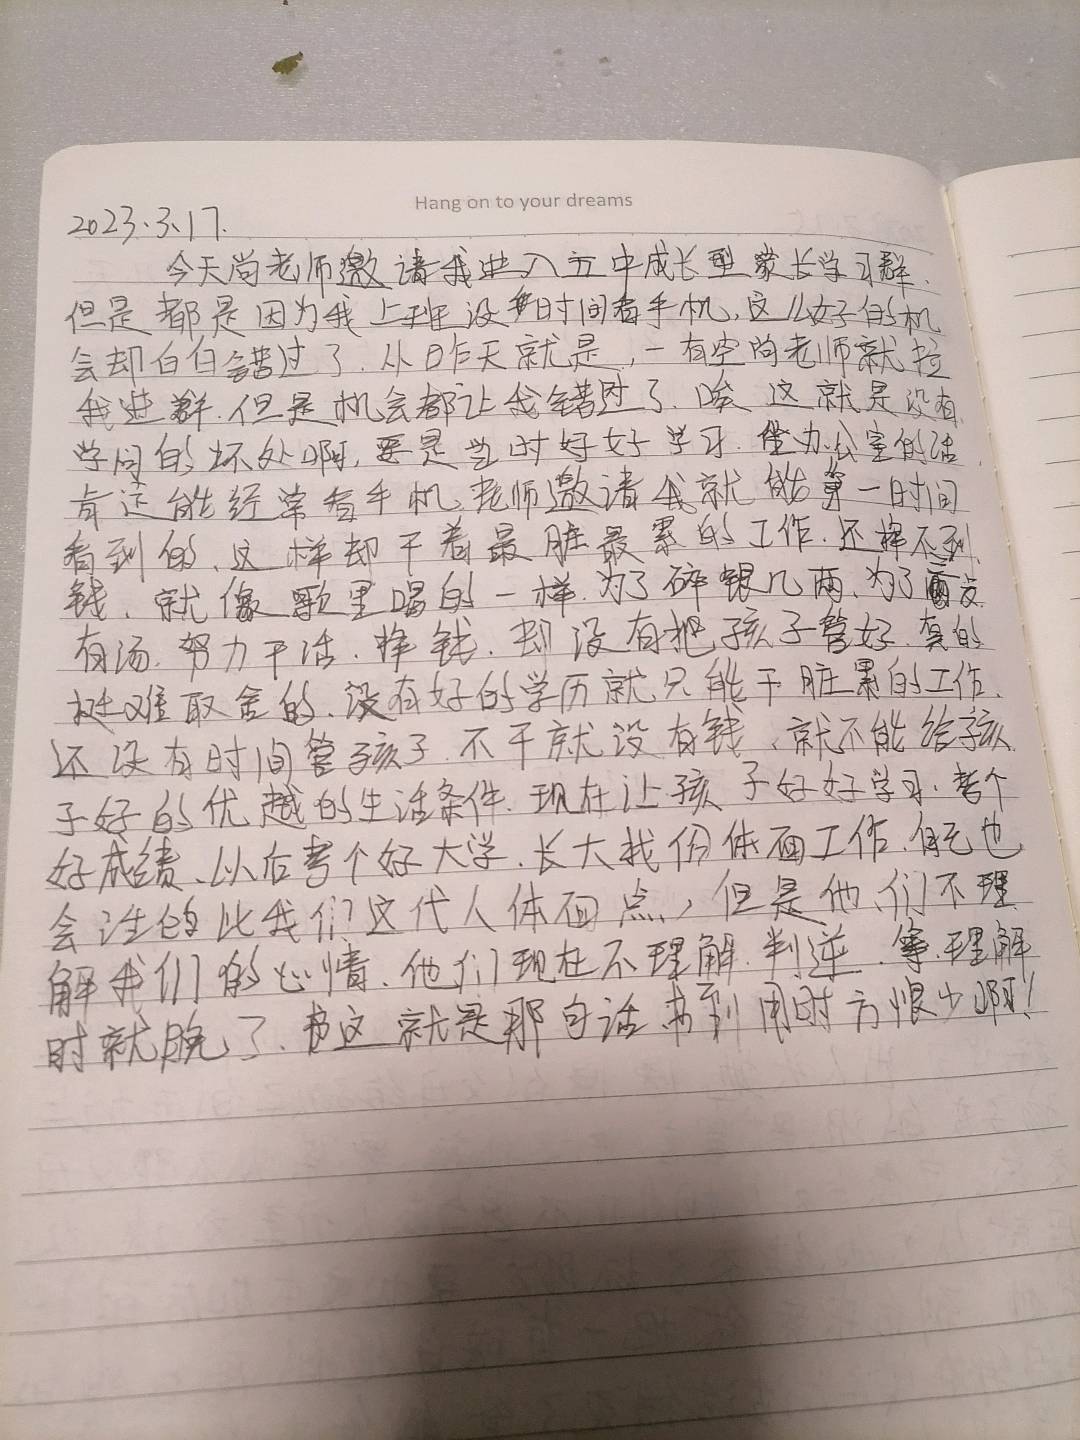 Hang on to your dreams
2023.3.17.
今天尚老师邀请我进入五中成长型家长学习群.
但是都是因为我上班没时间看手机,这么好的机
会却白白错过了.从昨天就是,一有空尚老师就拉
我进群.但是机会都让我错过了.唉 这就是没有
学问的坏处啊,要是当时好好学习.坐办公室的话.
肯定能经常看手机.老师邀请我就能第一时间
看到的、这样却干着最脏最累的工作.还挣不到
钱.就像歌里唱的一样.为了碎银几两.为了
有汤.努力干活.挣钱.却没有把孩子管好.真的
挺难取舍的.没有好的学历就只能干脏累的工作.
还没有时间管孩子.不干就没有钱.就不能给孩
子好的优越的生活条件.现在让孩子好好学习.考个
好成绩、以后考个好大学.长大找份体面工作.自己也
会活的比我们这代人体面点,但是他们不理
解我们的心情.他们现在不理解.判逆.等理解
时就晚了.这就是那句话书到用时方恨少啊!